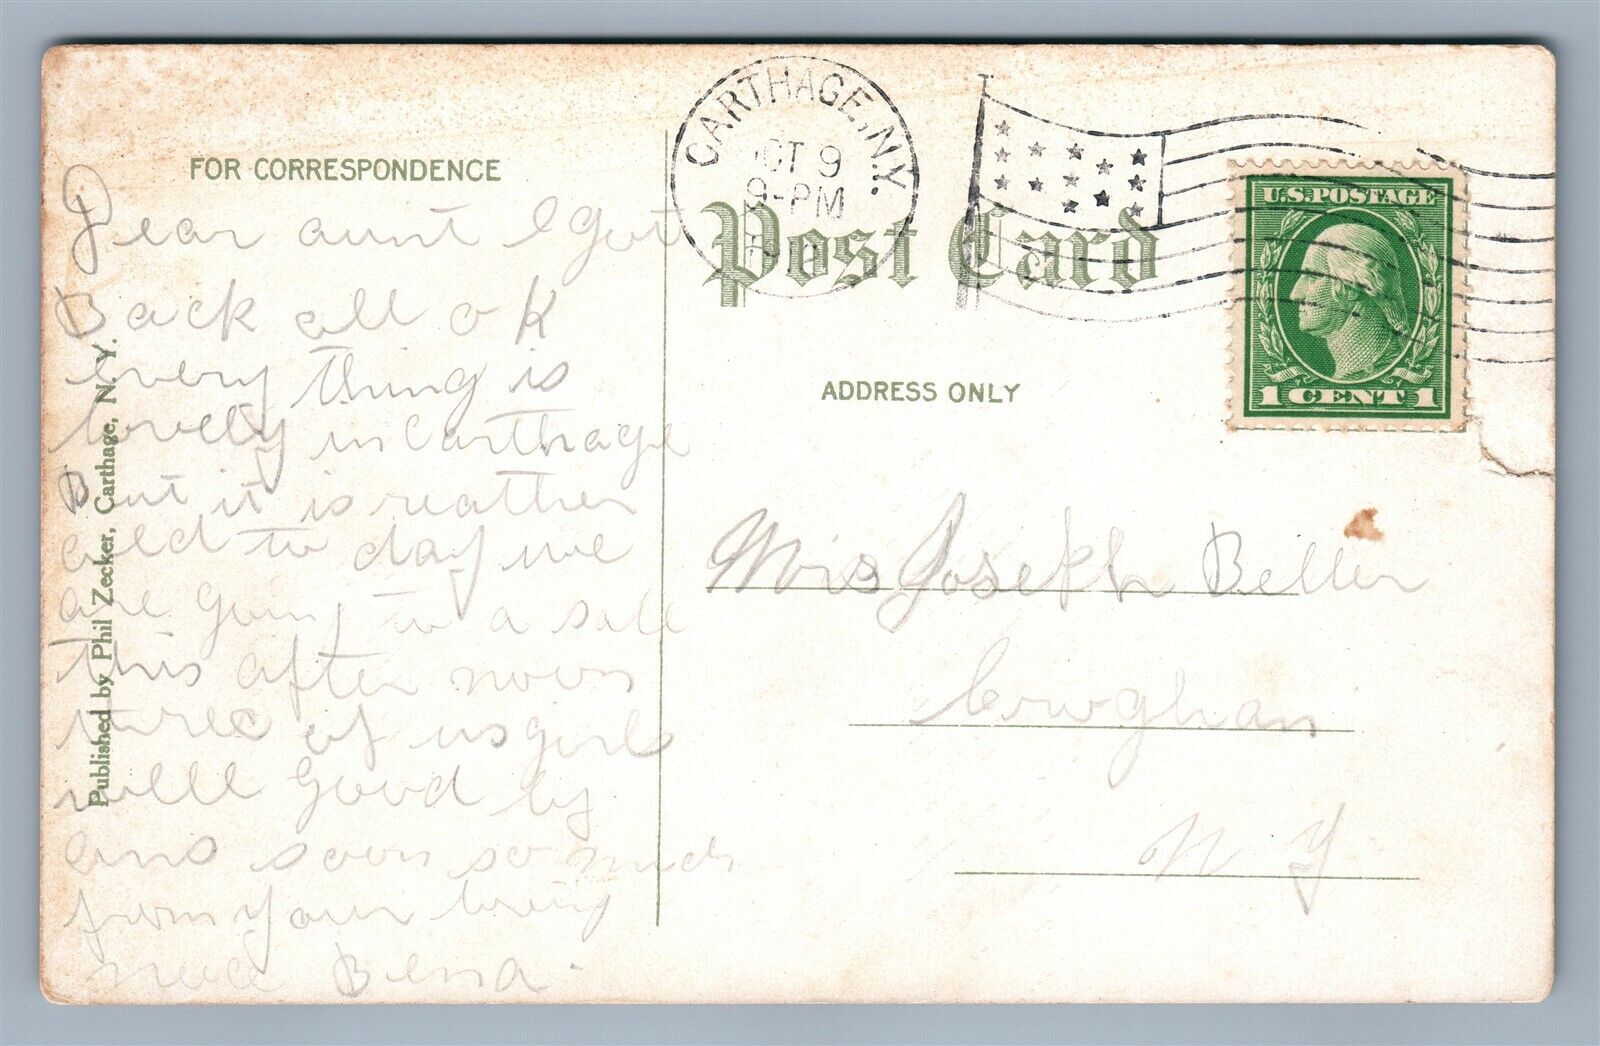 FOR CORRESPONDENCE
Dear aunt I got
Back all o K
every thing is
lovely in Carthage
But it is reather
cold to day we
are going to a sale
this after noon
three of us girls
well good by
ans soon so much
from your loving
neice Bena.
Published by Phil Zecker, Carthage, N. Y.
CARTHAGE, N.Y.
OCT 9
9-PM
Post Card
U.S. POSTAGE
1 CENT 1
ADDRESS ONLY
Mrs Joseph Beller
Croghan
N Y